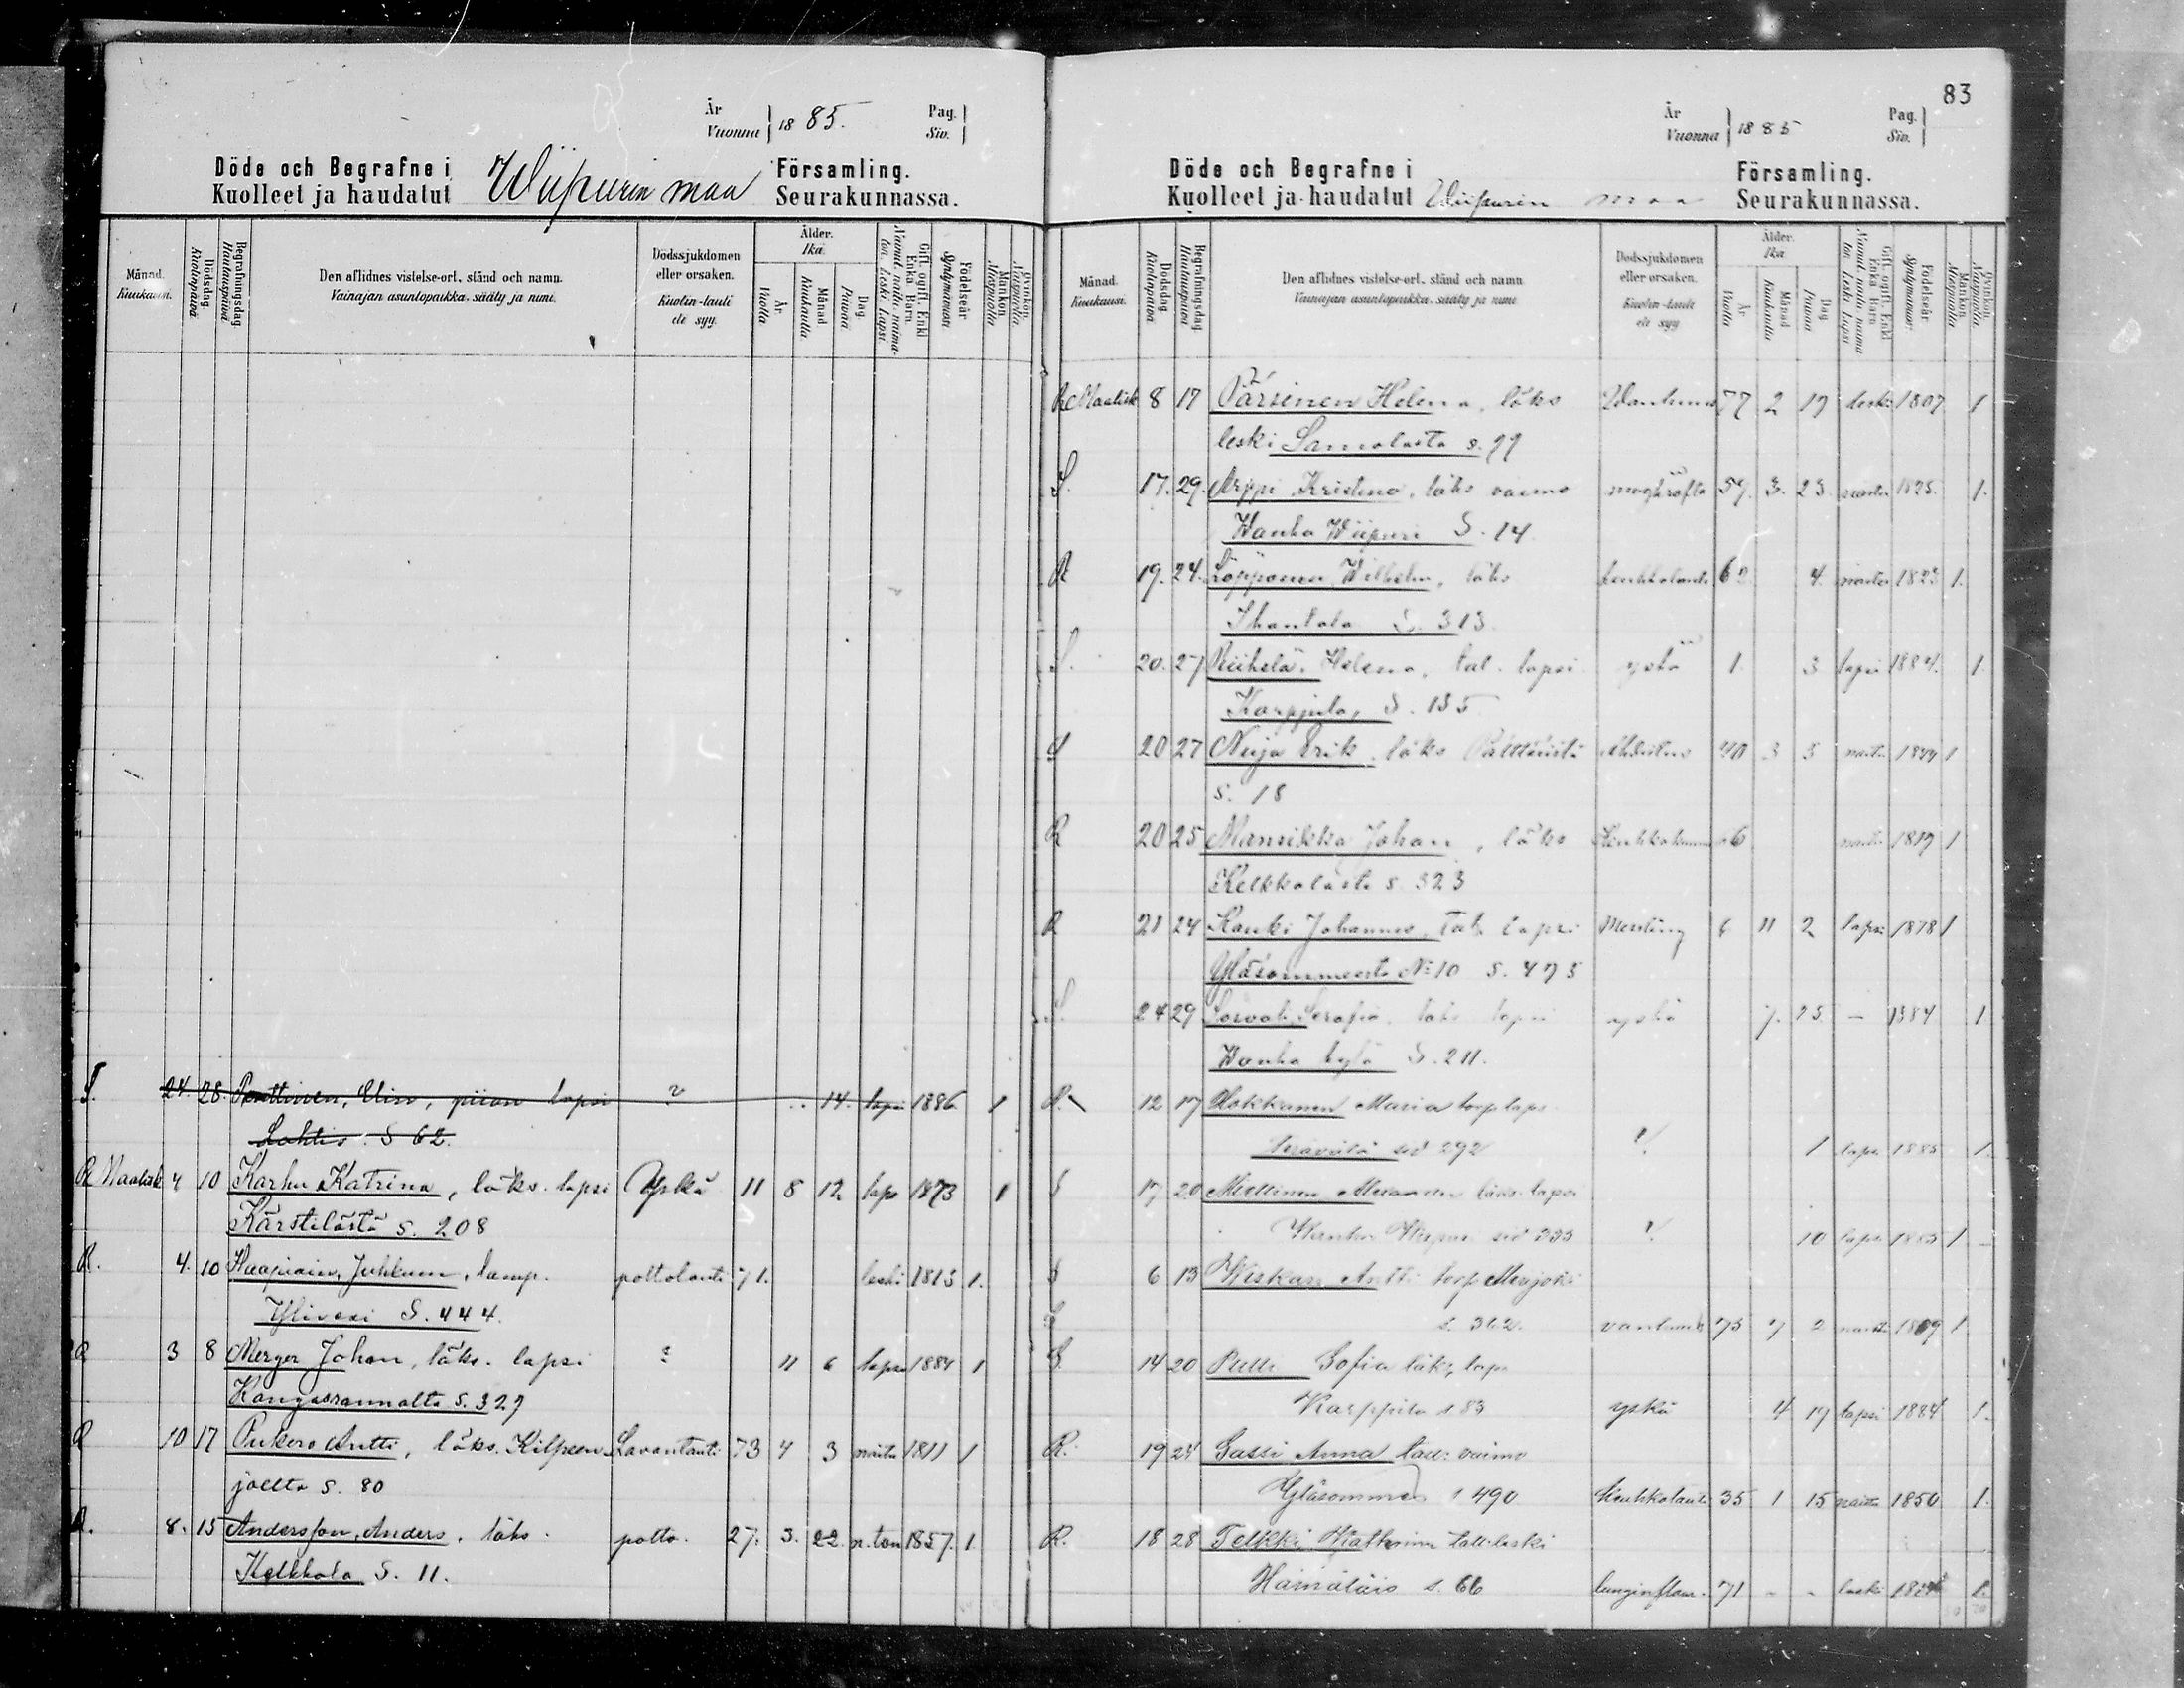 År
Vuonna } 1885.
Pag.
Siv. }
Döde och Begrafne i Församling.
Kuolleet ja haudatut Wiipurin maa Seurakunnassa.
Månad. Kuukausi.
Dödsdag Kuolinpäivä
Begrafningsdag Hautauspäivä
Den aflidnes vistelse-ort, stånd och namn.
Vainajan asuntopaikka, sääty ja nimi.
Dödssjukdomen eller orsaken.
Kuolin-tauti eli syy.
Ålder. Ikä.
År. Vuotta
Månad Kuukautta
Dag Päivää
Gift, ogift, Enkl. Enka, Barn.
Födelseår Syntymävuosi
Mankön Miespuolta
Qvinkön Naispuolta
S. 24. 28. Penttinen, Elin, piian lapsi ? 14. lapsi 1886 1
Lahtis. S 62.
R Maalisk 4 10 Karhu Katrina, läks. lapsi Yskä 11 8 12 laps 1873 1
Kärstilästä s. 208
R. 4. 10 Haapiain, Juhkum, lamp. polttotauti 71. leski 1813 1.
Ylivesi S. 444.
R 3 8 Merger Johan, läks. lapsi ? 11 6 lapsi 1884 1
Kangasrannalta s. 327
R 10 17 Pukero Antti, läks. Kilpeen Lavantauti 73 4 3 naitu 1811 1
joelta s. 80
R. 8. 15 Andersson, Anders. läks. poltto. 27. 3. 22. n. ton 1857. 1.
Kelkkala S. 11.
83
År
Vuonna } 1885
Pag.
Siv. }
Döde och Begrafne i Församling.
Kuolleet ja haudatut Wiipurin maa Seurakunnassa.
Månad. Kuukausi.
Dödsdag Kuolinpäivä
Begrafningsdag Hautauspäivä
Den aflidnes vistelse-ort, stånd och namn
Vainajan asuntopaikka, sääty ja nimi
Dödssjukdomen eller orsaken.
Kuolin-tauti eli syy
Ålder. Ikä
År Vuotta
Månad Kuukautta
Dag Päivää
Gift, ogift, Enkl. Enka, Barn
Födelseår Syntymävuosi
Mankön Miespuolta
Qvinkön Naispuolta
R Maalisk 8 17 Pärsinen Helena, läks Wanhuus 77 2 17 leski 1807 1
leski Samolasta s. 77
S. 17. 29. Arppi Kristina, läks vaimo 59. 3. 23. naitu 1825. 1.
Wanha Wiipuri S. 14
R 19. 24. Löppönen, Wilhelm, läks keuhkotauti 62 4. naitu 1823 1.
Ihantala S. 313.
S. 20. 27 Riihelä. Helena, tal. lapsi yskä 1. 3 lapsi 1884. 1.
Karppila, S. 135
S 20 27 Nuija Erik. läks 40 3 5 naitu 1844 1
s. 18
R 20 25 Mansikka Johan, läks naitu 1819 1
Kelkkalasta s. 323
R 21 24 Kauki Johannes, tal. lapsi Messling 6 11 2 lapsi 1878 1
Yläsommeesta No 10 S. 475
S. 24 29 Sorvali, Serafia. läks lapsi yskä 7. 25. — 1884 1
Wanha kylä S. 211.
R. 12 17 Hokkanen Maria torp laps.
Terävältä sid 292 ? 1 laps 1885 1.
S 17 20 Miettinen läks. lapsi
Wanha Wiipuri sid 233 ? 10 laps 1885 1
S 6 13 Wiskari Antti torp Merijoki
s. 362. vanhuus 75 7 2 naitu 1809 1
S. 14 20 Pulli Sofia läks, laps
Karppila s 83 yskä 4 19 lapsi 1884 1.
R. 19 24 Sassi Anna tal: vaimo
Yläsommee s 490 Keuhkotauti 35 1 15 naitu 1850 1.
R. 18 28 Telkki Katharina tall. leski
Hämäläis s. 66 lunginflam. 71 - - leski 1.